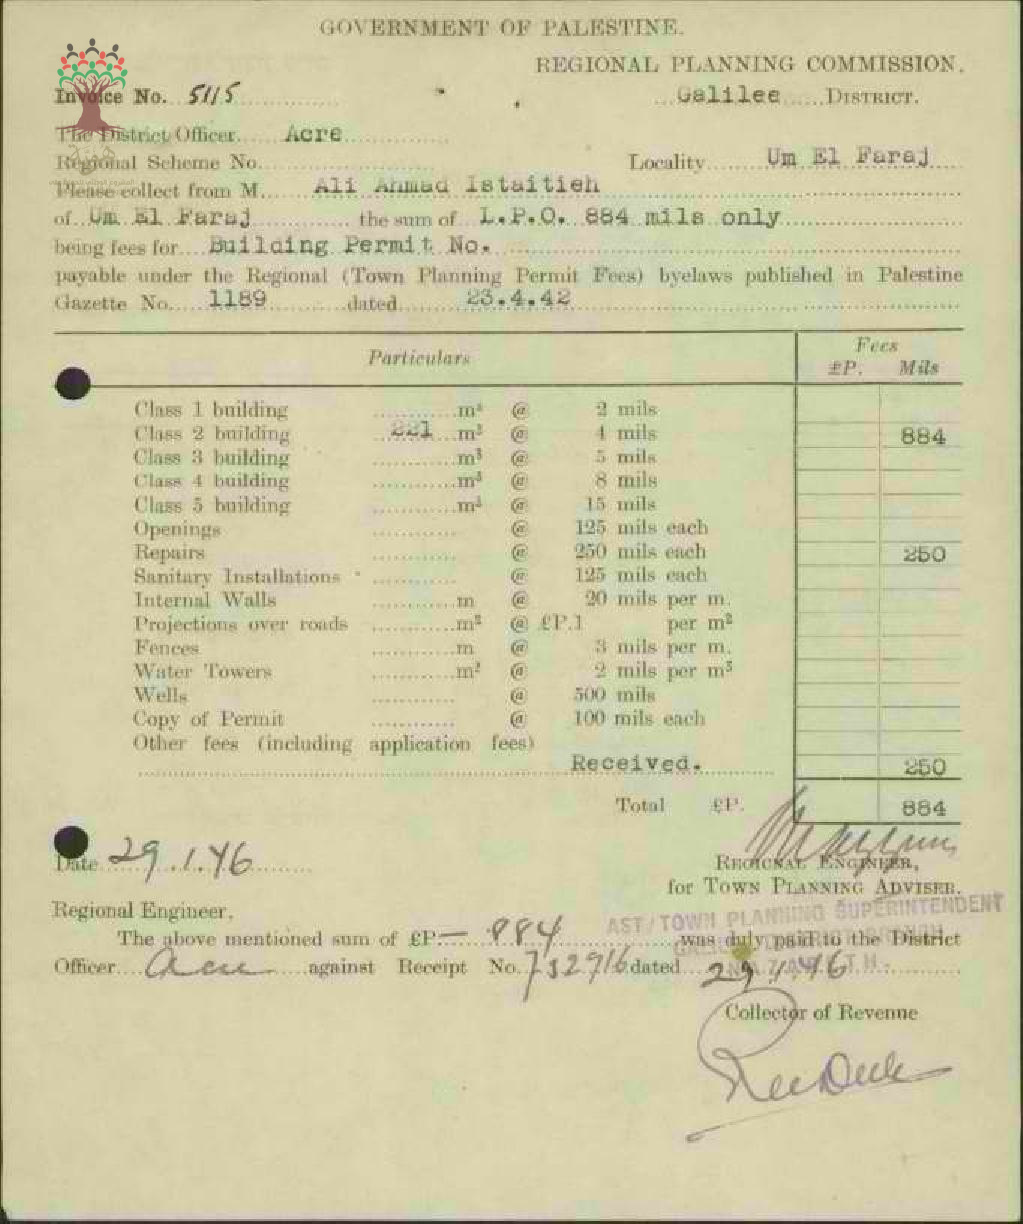 GOVERNMENT OF PALESTINE.
REGIONAL PLANNING COMMISSION.
Invoice No. 5115
Galilee DISTRICT.
The District Officer Acre
Regional Scheme No. Locality Um El Faraj
Please collect from M. Ali Ahmad Istaitieh
of Um El Faraj the sum of L.P.O. 884 mils only
being fees for Building Permit No.
payable under the Regional (Town Planning Permit Fees) byelaws published in Palestine
Gazette No. 1189 dated 23.4.42
Particulars Fees
£P. Mils
Class 1 building m³ @ 2 mils
Class 2 building 221 m³ @ 4 mils 884
Class 3 building m³ @ 5 mils
Class 4 building m³ @ 8 mils
Class 5 building m³ @ 15 mils
Openings @ 125 mils each
Repairs @ 250 mils each 250
Sanitary Installations @ 125 mils each
Internal Walls m @ 20 mils per m.
Projections over roads m² @ £P.1 per m²
Fences m @ 3 mils per m.
Water Towers m³ @ 2 mils per m³
Wells @ 500 mils
Copy of Permit @ 100 mils each
Other fees (including application fees)
Received. 250
Total £P. 884
Date 29.1.46
REGIONAL ENGINEER,
for TOWN PLANNING ADVISER.
Regional Engineer,
AST/TOWN PLANNING SUPERINTENDENT
The above mentioned sum of £P — 884 was duly paid to the District
Officer Acre against Receipt No. 732916 dated 29.1.46
Collector of Revenue